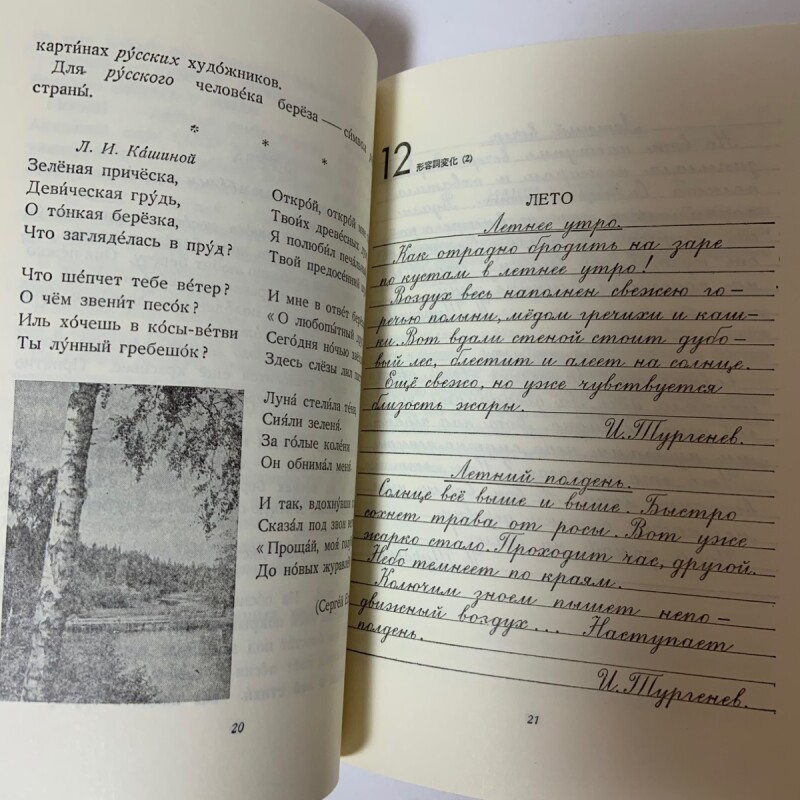 карти́нах ру́сских худо́жников.
Для ру́сского челове́ка берёза —
страны́.
* * *
Л. И. Ка́шиной
Зелёная причёска,
Деви́ческая грудь,
О то́нкая берёзка,
Что загляде́лась в пруд?
Что ше́пчет тебе ве́тер?
О чём звени́т песо́к?
Иль хо́чешь в ко́сы-ве́тви
Ты лу́нный гребешо́к?
Откро́й, откро́й
Твои́х древе́сных
Я полюби́л
Твой предосе́нний
И мне в отве́т
«О любопы́тный
Сего́дня но́чью
Здесь слёзы лил
Луна́ стели́ла
Сия́ли зеленя́.
За го́лые коле́ни
Он обнима́л меня́
И так, вдохну́вши
Сказа́л под звон
«Проща́й, моя́
До но́вых
(Серге́й
20
12 形容詞変化 (2)
ЛЕТО
Летнее утро.
Как отрадно бродить на заре
по кустам в летнее утро!
Воздух весь наполнен свежею го-
речью полыни, мёдом гречихи и каш-
ки. Вот вдали стеной стоит дубо-
вый лес, блестит и алеет на солнце.
Ещё свежо, но уже чувствуется
близость жары.
И. Тургенев.
Летний полдень.
Солнце всё выше и выше. Быстро
сохнет трава от росы. Вот уже
жарко стало. Проходит час, другой.
Небо темнеет по краям.
Колючим зноем пышет непо-
движный воздух... Наступает
полдень.
И. Тургенев.
21